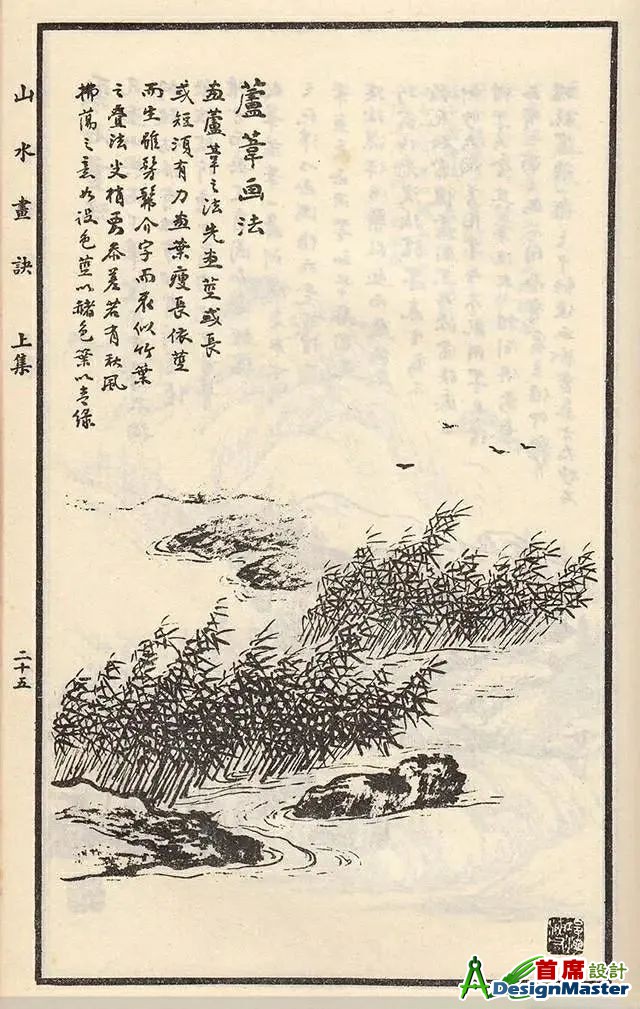 蘆葦画法
画蘆葦之法先画莖或長
或短須有力画葉瘦長依莖
而生雖髣髴介字而似竹葉
之叠法尖梢要参差若有秋風
拂蕩之意如设色莖以赭色葉以青绿
山水畫訣 上集
二十五
首席設計
ADesignMaster